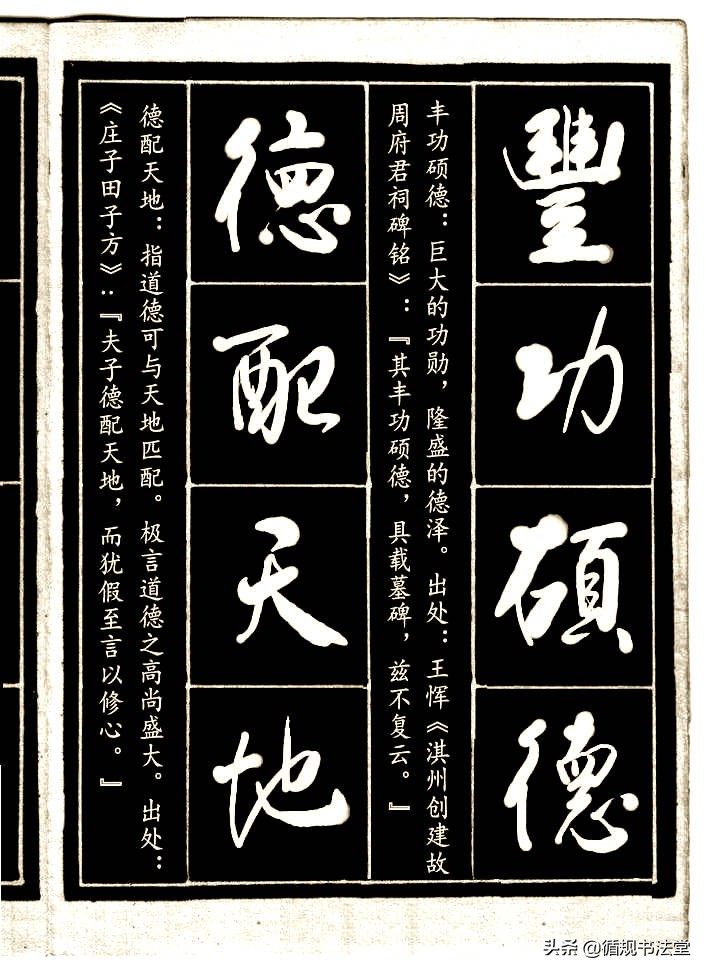 豐功碩德
丰功硕德：巨大的功勋，隆盛的德泽。出处：王恽《淇州创建故
周府君祠碑铭》：『其丰功硕德，具载墓碑，兹不复云。』
德配天地
德配天地：指道德可与天地匹配。极言道德之高尚盛大。出处：
《庄子田子方》：『夫子德配天地，而犹假至言以修心。』
头条 @循规书法堂